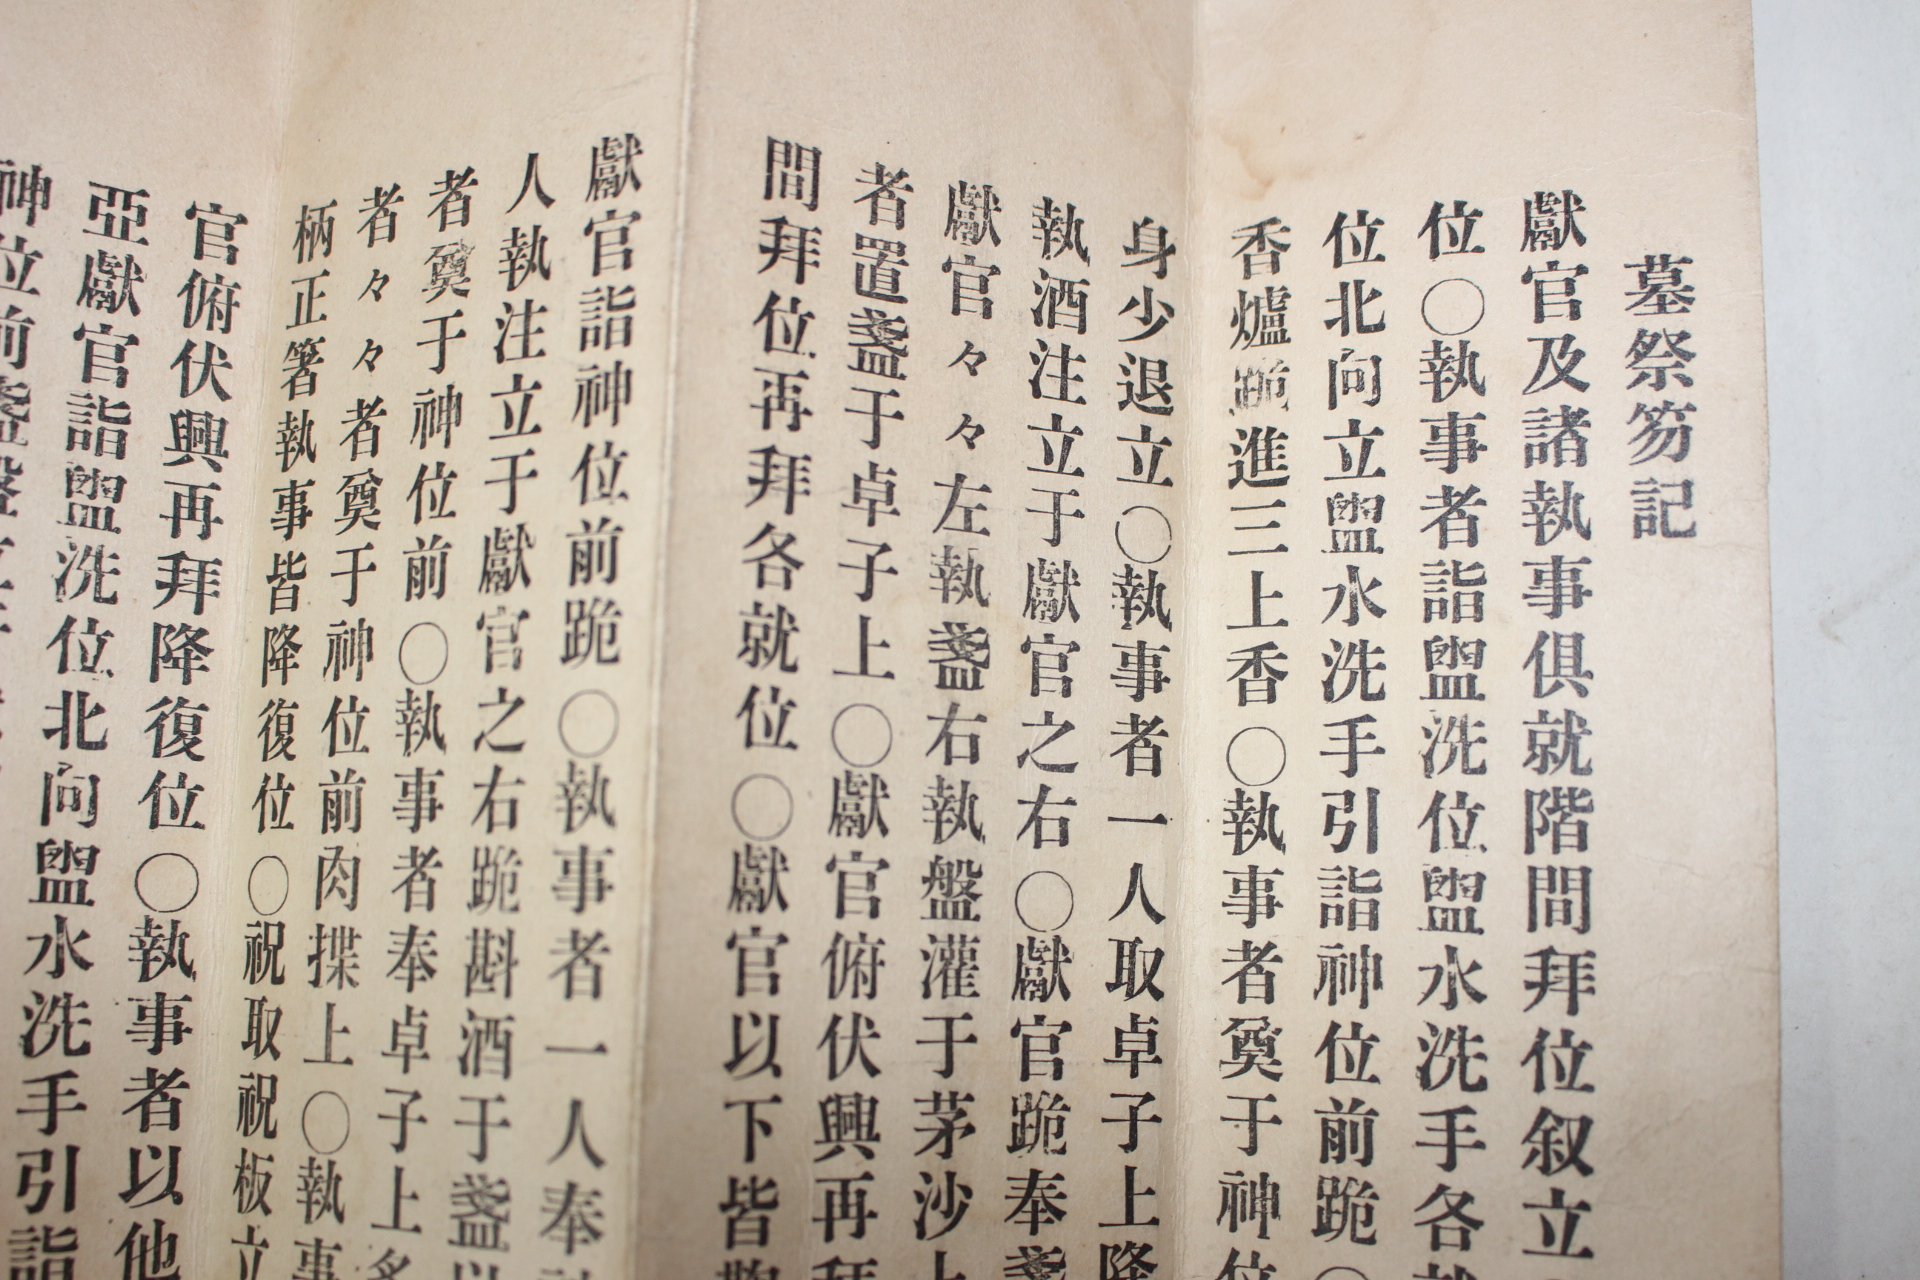 墓祭笏記
獻官及諸執事俱就階間拜位叙立
位〇執事者詣盥洗位盥水洗手各就
位北向立盥水洗手引詣神位前跪〇
香爐跪進三上香〇執事者奠于神位
身少退立〇執事者一人取卓子上降
執酒注立于獻官之右〇獻官跪奉盞
獻官々々左執盞右執盤灌于茅沙上
者置盞于卓子上〇獻官俯伏興再拜
間拜位再拜各就位〇獻官以下皆鞠
獻官詣神位前跪〇執事者一人奉
人執注立于獻官之右跪斟酒于盞以
者奠于神位前〇執事者奉卓子上
者々々者奠于神位前肉揲上〇執事
柄正箸執事皆降復位〇祝取祝板立
官俯伏興再拜降復位〇執事者以他
亞獻官詣盥洗位北向盥水洗手引詣
神位前